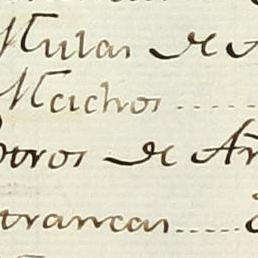 Mulas de A
Machos .....
otros de Ar
trancas.....